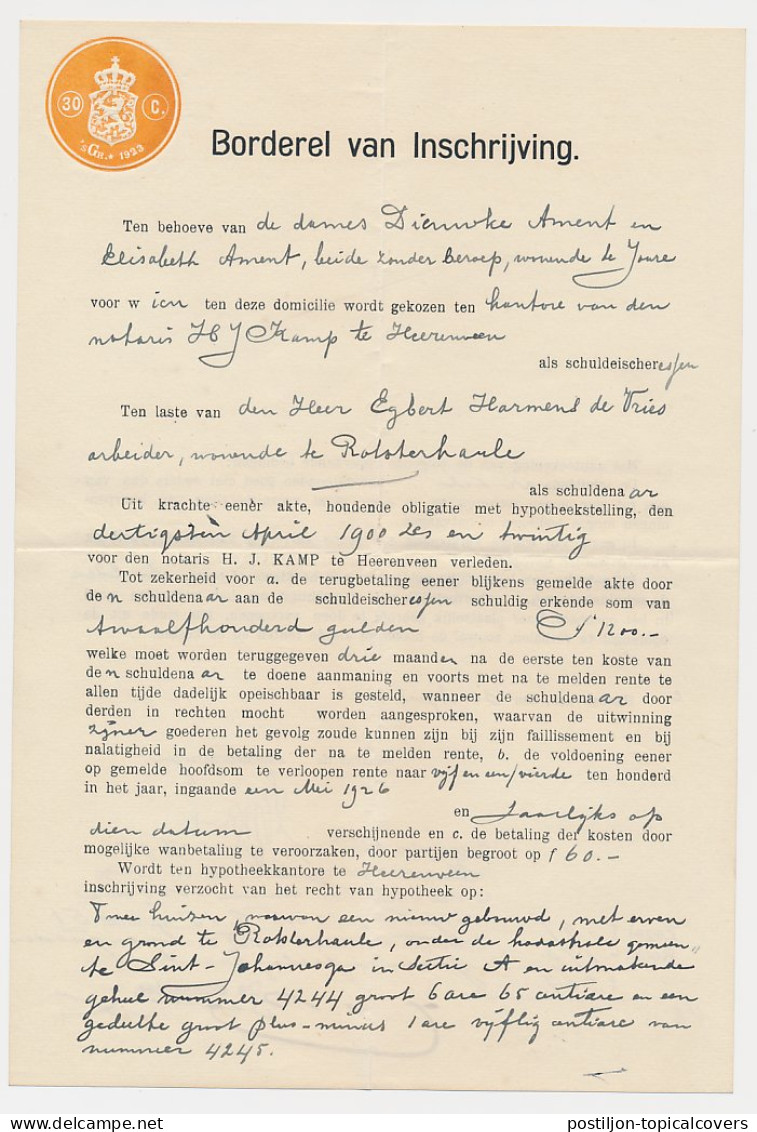 30 C.
'sGR.* 1923
Borderel van Inschrijving.
Ten behoeve van de dames Dieuwke Ament en
Elisabeth Ament, beide zonder beroep, wonende te Joure
voor wien ten deze domicilie wordt gekozen ten kantore van den
notaris H J Kamp te Heerenveen
als schuldeischeressen
Ten laste van den Heer Egbert Harmens de Vries
arbeider, wonende te Rotsterhaule
als schuldenaar
Uit krachte eener akte, houdende obligatie met hypotheekstelling, den
dertigsten April 1900 zes en twintig
voor den notaris H. J. KAMP te Heerenveen verleden.
Tot zekerheid voor a. de terugbetaling eener blijkens gemelde akte door
den schuldenaar aan de schuldeischeressen schuldig erkende som van
twaalfhonderd gulden f 1200.-
welke moet worden teruggegeven drie maanden na de eerste ten koste van
den schuldenaar te doene aanmaning en voorts met na te melden rente te
allen tijde dadelijk opeischbaar is gesteld, wanneer de schuldenaar door
derden in rechten mocht worden aangesproken, waarvan de uitwinning
zijner goederen het gevolg zoude kunnen zijn bij zijn faillissement en bij
nalatigheid in de betaling der na te melden rente, b. de voldoening eener
op gemelde hoofdsom te verloopen rente naar vijf en een/vierde ten honderd
in het jaar, ingaande een Mei 1926
en Jaarlijks op
dien datum verschijnende en c. de betaling der kosten door
mogelijke wanbetaling te veroorzaken, door partijen begroot op f 60.-
Wordt ten hypotheekkantore te Heerenveen
inschrijving verzocht van het recht van hypotheek op:
Twee huizen, waarvan een nieuw gebouwd, met erven
en grond te Rotsterhaule, onder de kadastrale gemeen„
te Sint-Johannesga in Sectie A en uitmakende
geheel nummer 4244 groot 6 are 65 centiare en een
gedeelte groot plus-minus 1 are vijftig centiare van
nummer 4245.
postiljon-topicalcovers
DELCAMPE.NET